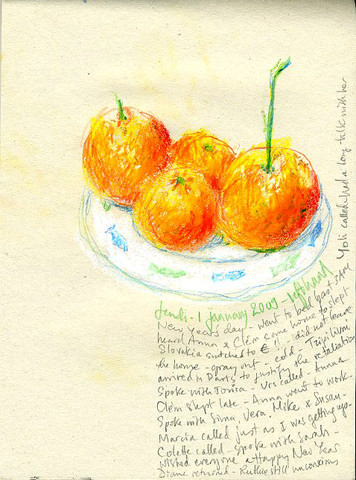 jeudi - 1 January 2009 - left hand
New Year's day - went to bed past 2 AM
heard Anna & Clém come home to slept
Slovakia switched to € !! - did not leave
the home - gray out - cold - Tzipi Livni
arrived in Paris to justify the retaliation
Spoke with Jorica - Urs called - Anna &
Clém slept late - Anna went to work.
Spoke with Sima, Vera, Mike & Susan -
Marcia called just as I was getting up.
Colette called - spoke with Sarah -
wished everyone a Happy New Year
Diane returned - Ruthie still unconscious
Yoli called - had a long talk with her